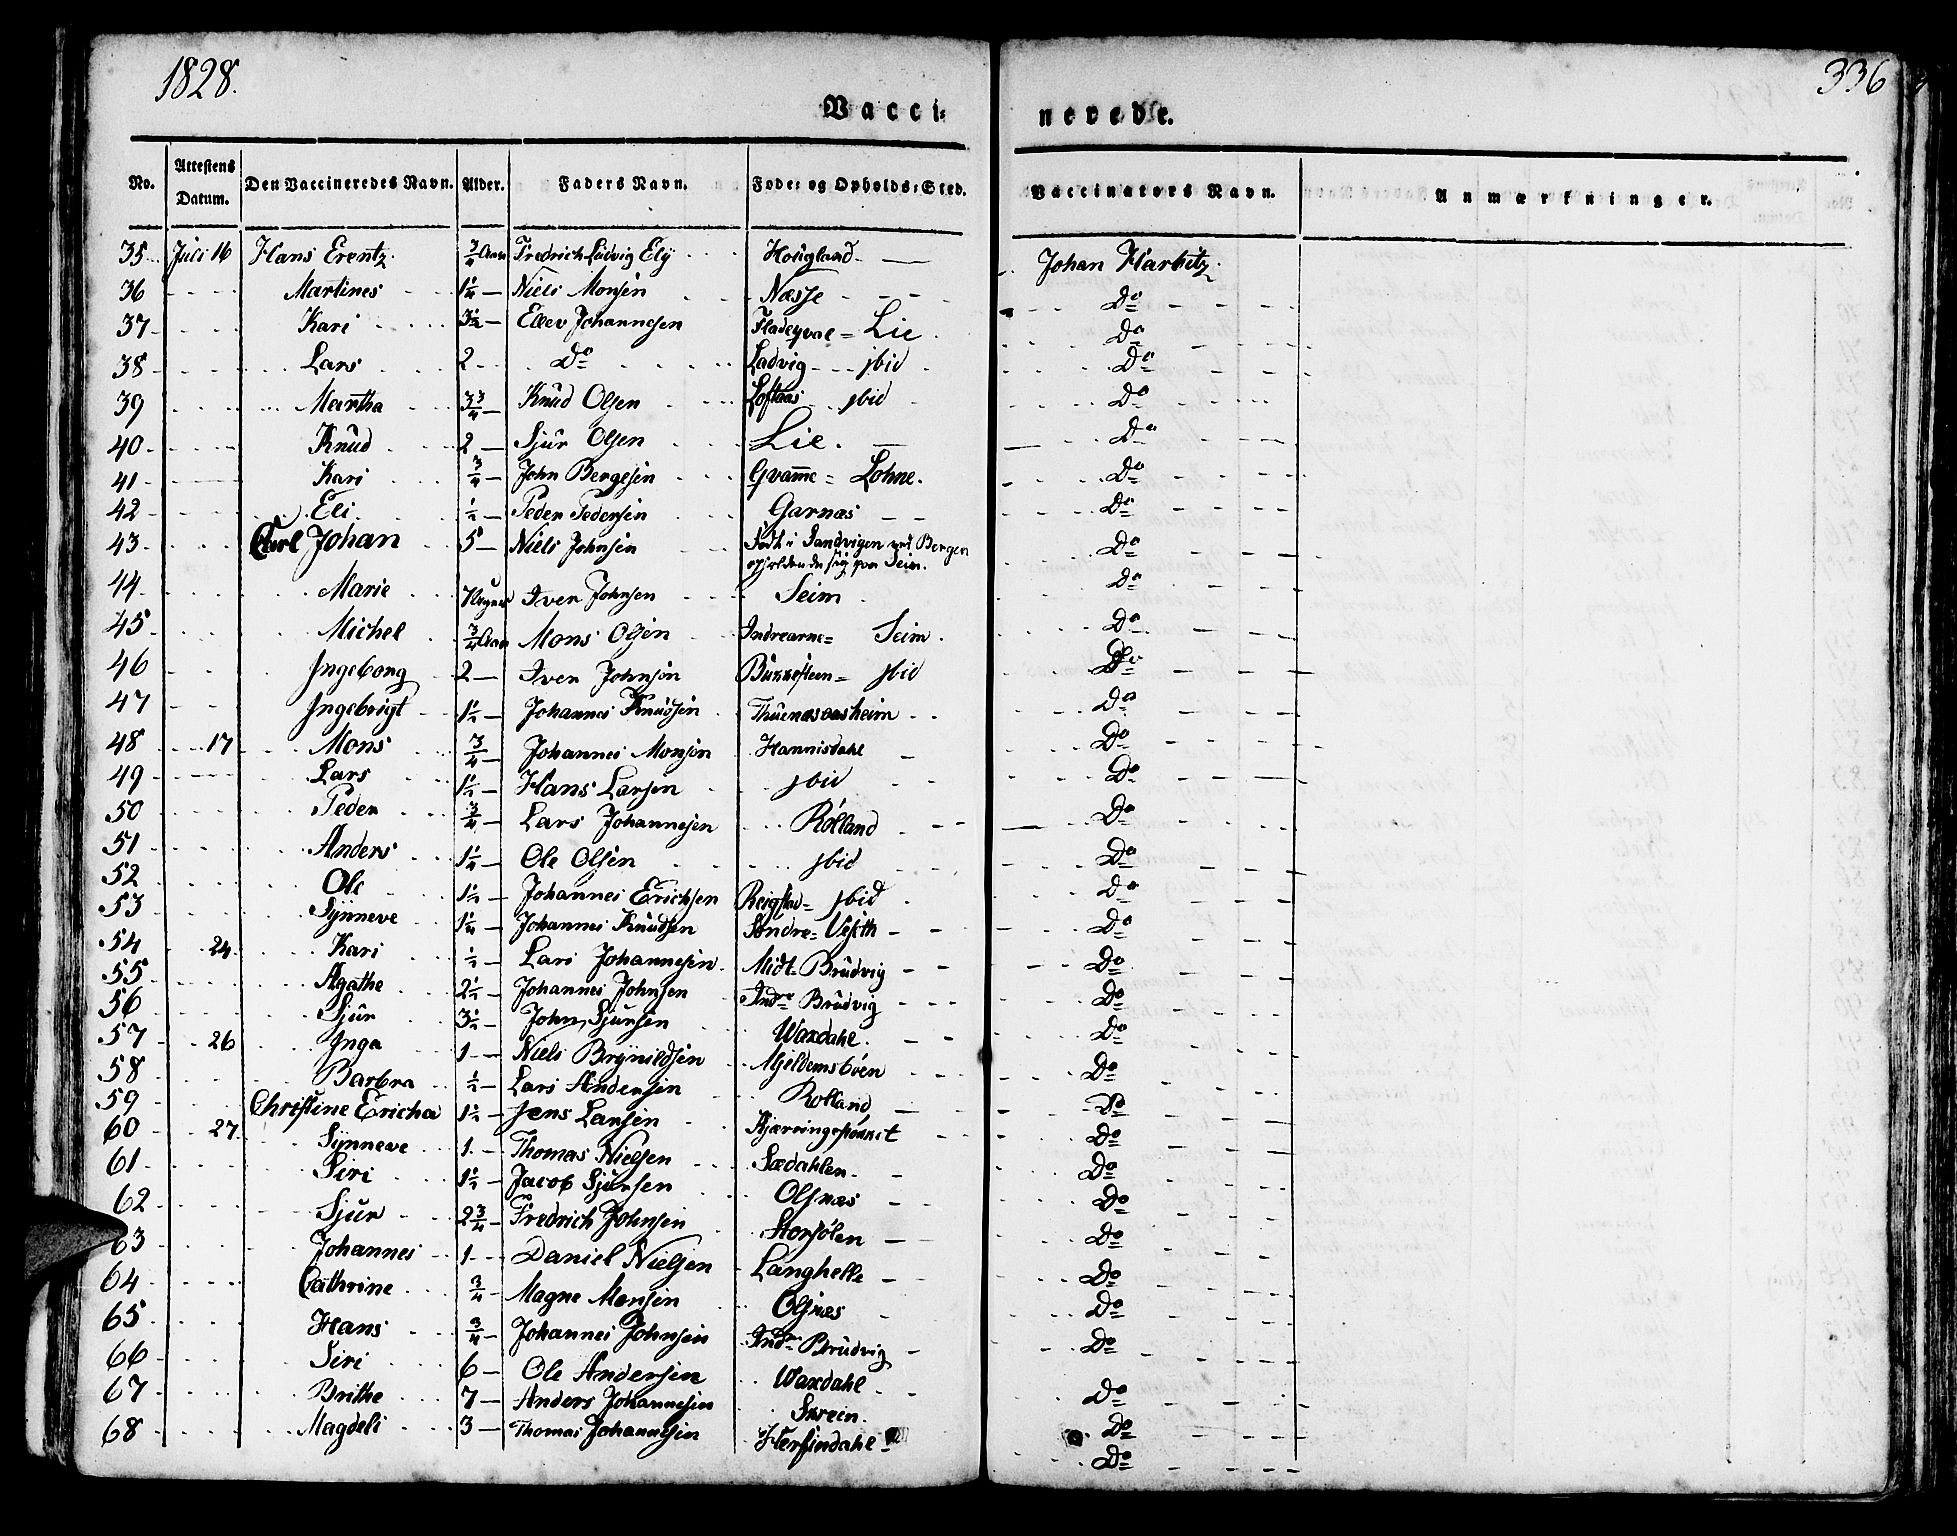 1828.
336
Vacci- nerede.
No. Attestens Datum. Den Vaccineredes Navn. Alder. Faders Navn. Føde- og Opholds-Sted. Vaccinateurs Navn. Anmærkninger.
35 Juli 16 Hans Erentz. 3/4 Aar Fredrich Ludvig Ely Hougland Johan Harbitz.
36 Martines 1 1/4 Niels Monsen Næsse Do
37 Kari 3 1/2 Ellev Johannesen Fladeqval = Lie Do
38 Lars 2 Do Ladvig jbid Do
39 Martha 3 3/4 Knud Olsen Loftaas jbid Do
40 Knud 2 Sjur Olsen Lie. Do
41 Kari 3/4 John Bergesen Gvamme = Lohne. Do
42 Eli 1/2 Peder Pedersen Garnæs Do
43 Carl Johan 5 Niels Johnsen Født i Sandvigen ved Bergen
opholdende sig paa Seim. Do
44 Marie Iver Johnsen Seim Do
45 Michel 3/4 Aar Mons Olsen Indrearne = Seim. Do
46 Ingeborg 2 Iver Johnsen = jbid Do
47 Ingebrigt 1 1/2 Johannes Knudsen Do
48 17 Mons 3/4 Johannes Monsen Hannisdahl Do
49 Lars 1 1/2 Hans Larsen jbid Do
50 Peder 3/4 Lars Johannesen Rolland Do
51 Anders 1 1/4 Ole Olsen jbid Do
52 Ole 1 1/2 Johannes Erichsen Reigstad = jbid Do
53 Synneve 1 1/4 Johannes Knudsen Søndre = Do
54 24 Kari 1/2 Lars Johannesen Midt-Brudvig Do
55 Agathe 2 1/2 Johannes Johnsen Indre Brudvig Do
56 Sjur 3 1/2 John Sjursen Waxdahl. Do
57 26 Inga 1 Niels Brynildsen Mjeldemsbøen Do
58 Barbra 1/2 Lars Andersen Rolland Do
59 Christine Ericha 1 1/2 Jens Larsen Do
60 27 Synneve 1 Thomas Nielsen Sædahlen Do
61 Siri 1 1/2 Jacob Sjursen Olsnæs Do
62 Sjur 2 3/4 Fredrich Johnsen Storsølen Do
63 Johannes 1 Daniel Nielsen Langhelle Do
64 Cathrine 3/4 Magne Monsen Olsnæs Do
65 Hans 3/4 Johannes Johnsen Indre Brudvig Do
66 Siri 6 Ole Andersen Waxdahl Do
67 Brithe 7 Anders Johannesen Skrein. Do
68 Magdeli 3 Thomas Johannesen Herfindahl Do